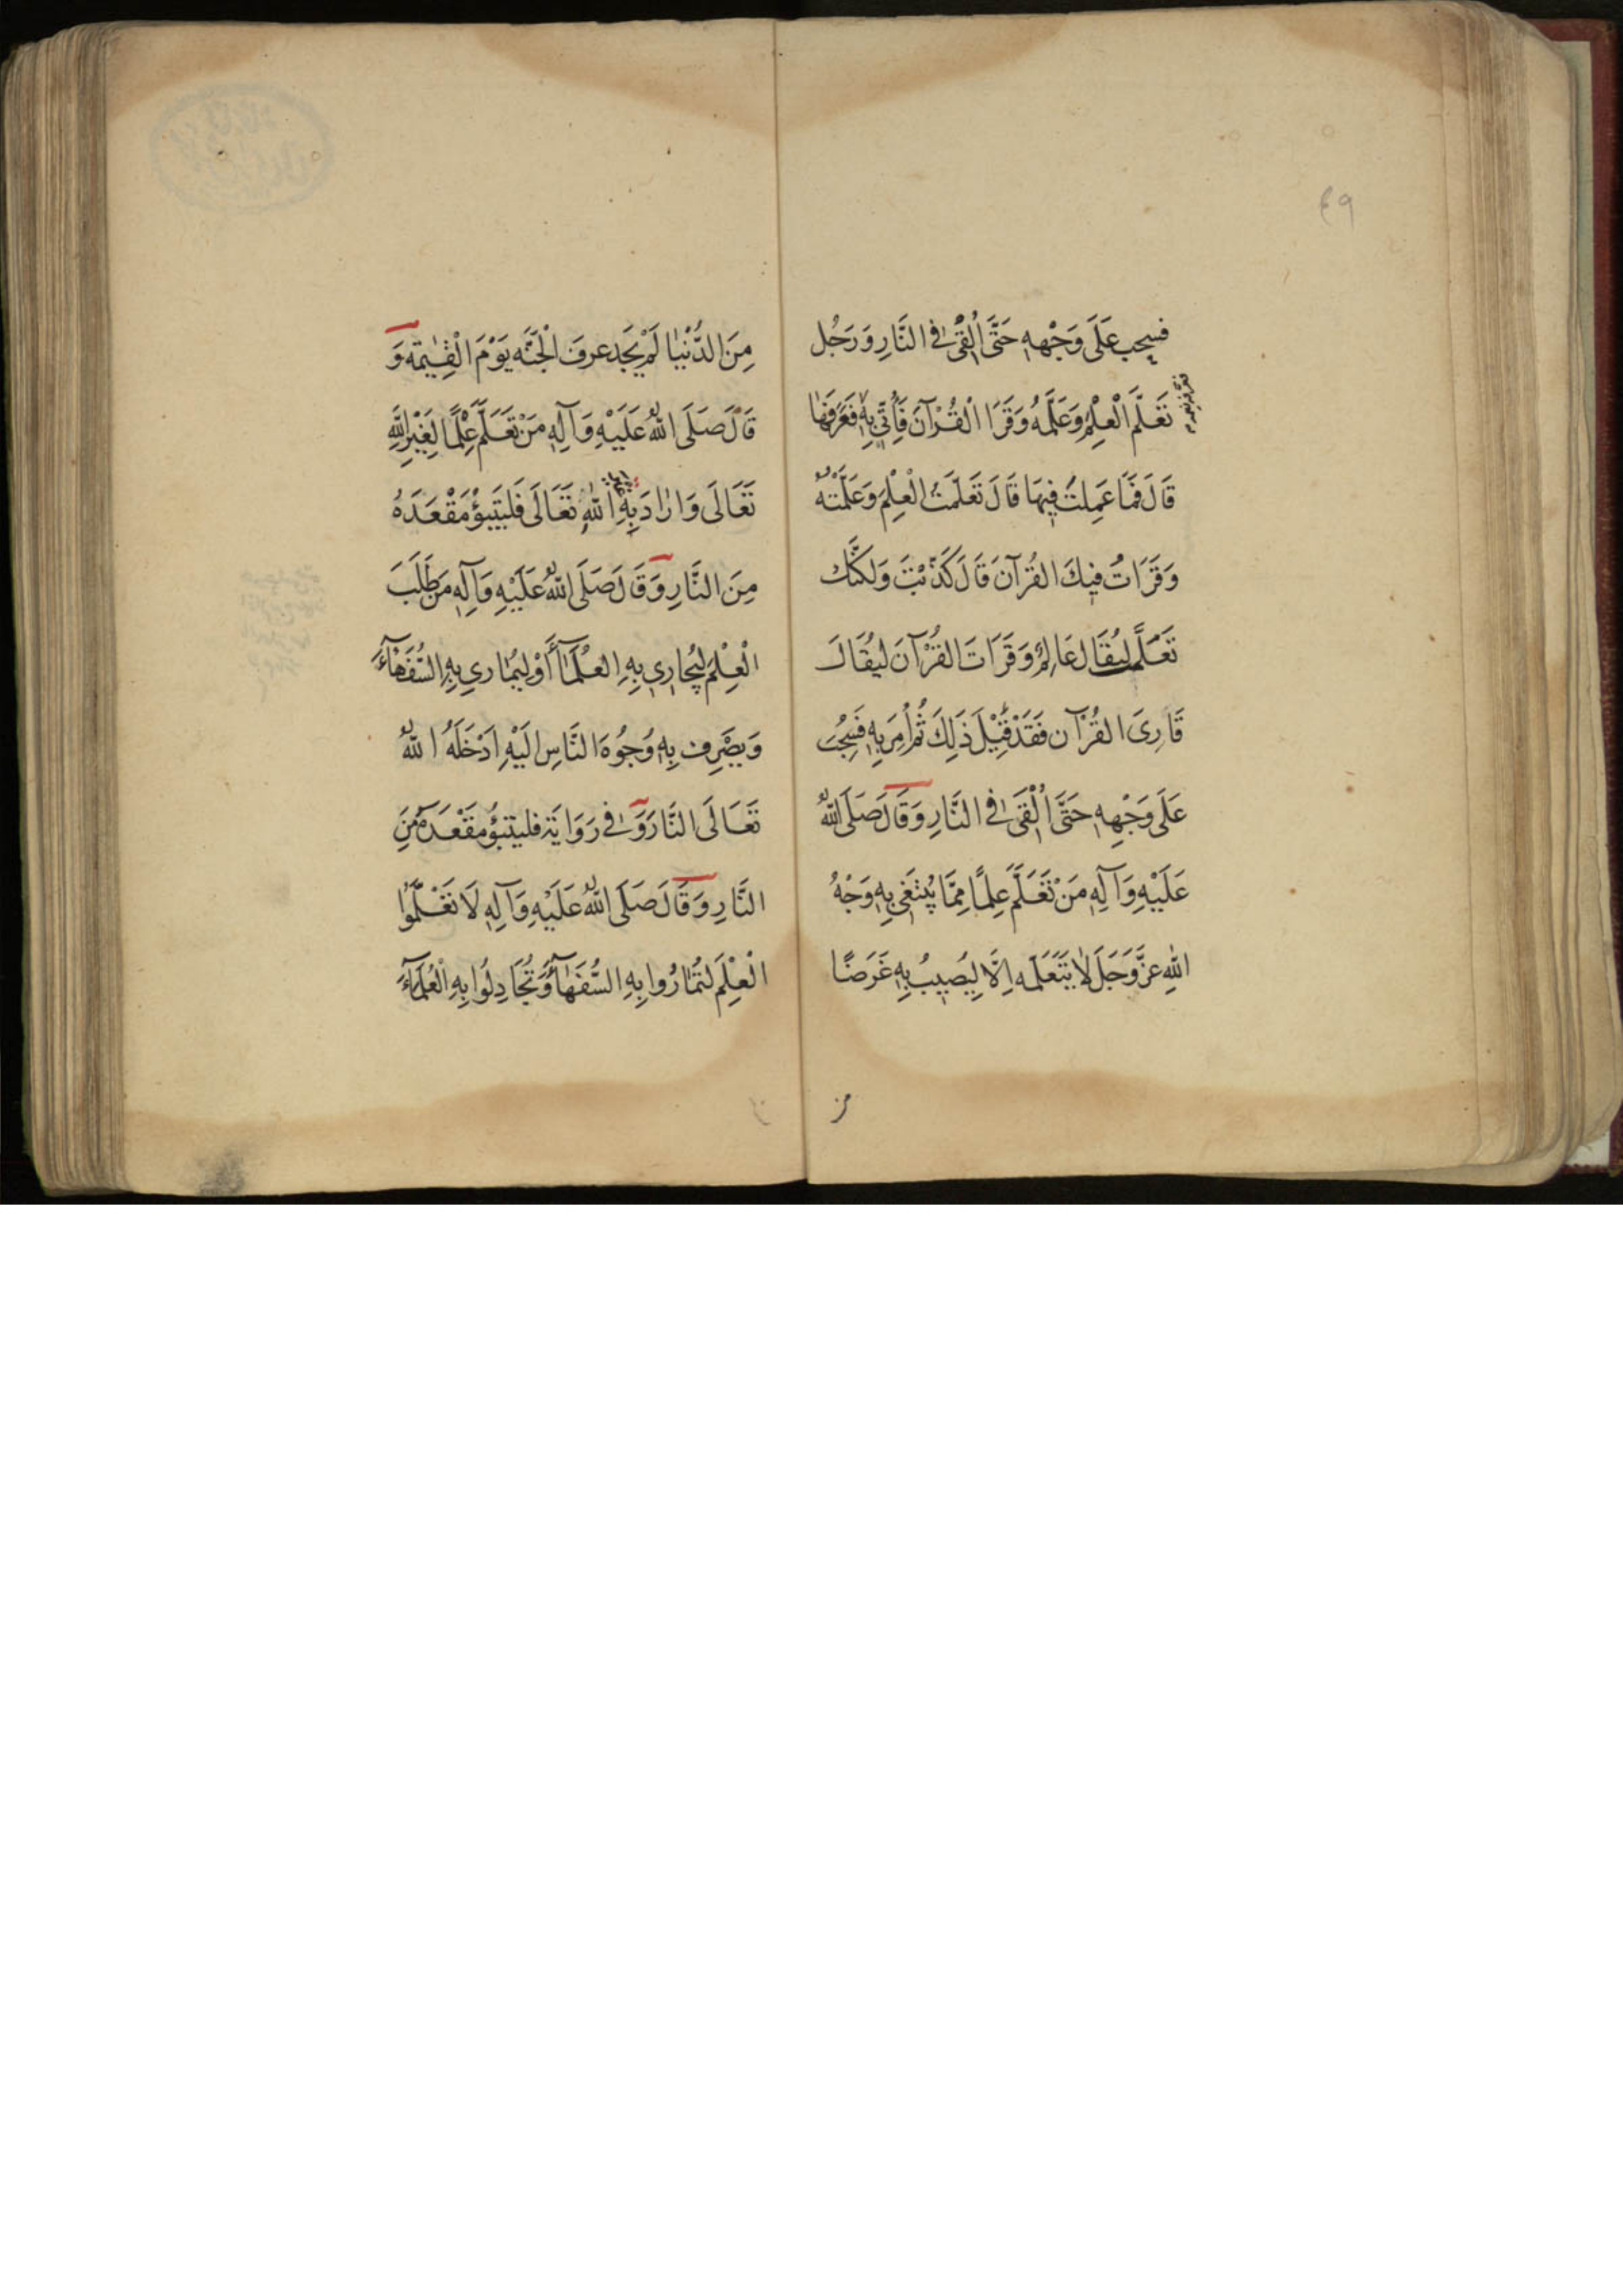 ٤٩
فسحب عَلَى وَجْهِهِ حَتَّى اُلْقِىَ فِى النَّارِ وَ رَجُل
تَعَلَّمَ الْعِلْمَ وَعَلَّمَهُ وَقَرَا الْقُرْآنَ فَأُتِىَ بِهِ فَعَرَّفَهَا
قَالَ فَمَا عَمِلتَ فِيهَا قَالَ تَعَلَّمتُ الْعِلْمَ وَعَلَّمْتُهُ
وَقَرَاتُ فِيكَ القُرْآنَ قَالَ كَذَبْتَ وَلكنَّكَ
تَعَلَّمتَ لِيُقَالَ عَالِمٌ وَقَرَاتَ القُرْآنَ لِيُقَالَ
قَارِىَ القُرْآن فَقَدْ قِيْلَ ذَلِكَ ثُمَّ اُمِرَ بِهِ فَسُحِبَ
عَلَى وَجْهِهِ حَتَّى اُلْقِىَ فِى النَّارِ وَقَالَ صَلَى اللهُ
عَلَيْهِ وَآلِهِ مَنْ تَعَلَّمَ عِلمًا مِمَّا يُبْتَغَى بِهِ وَجْهُ
اللهِ عَزَّ وَجَلَ لا يَتَعَلَّمَه اِلَّا لِيُصِيبُ بِهِ غَرَضًا
مِنَ الدُّنْيَا لَمْ يَجَد عرفَ الْجَنَّه يَوْمَ الْقِيٰمَة وَ
قَالَ صَلَى اللهُ عَلَيْهِ وَآلِهِ مَنْ تَعَلَّمَ عِلْمًا لِغَيْرِ اللهِ
تَعَالَى وَارَادَ بِهِ اللهِ تَعَالَى فَليَتَبَؤْ مَقْعَدَهُ
مِنَ النَّارِ وَقَالَ صَلَى اللهُ عَلَيْهِ وَآلِهِ مَن طَلَبَ
الْعِلْمَ لِيُجَارِى بِهِ العُلَمَآءَ أَوْ لِيُمَارِى بِهِ السُّفَهَآءَ
وَيصْرِف بِهِ وَجُوُهَ النَّاسِ اِلَيْهِ اَدْخَلَهُ اللهُ
تَعَالَى النَّارَ وَفِى رَوَايَة فليتبَؤُ مقْعَدَهُ مِنَ
النَّارِ وَقَالَ صَلَى اللهُ عَلَيْهِ وَآلِهِ لَا تَعْلَّمُوا
الْعِلْمَ لِتُمَارُوا بِهِ السُّفَهَآءَ وَتُجَادِلُوا بِهِ الْعُلَمَآءَ
من